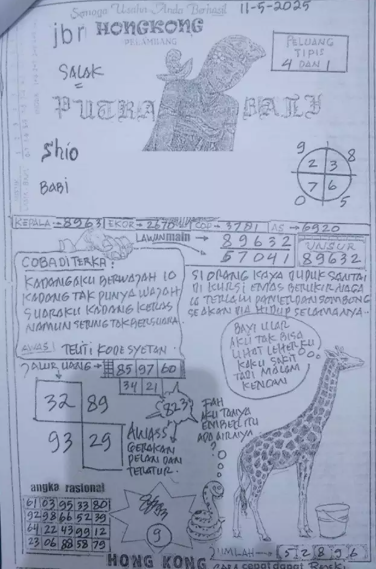 Semoga Usaha Anda Berhasil 11-5-2025
jbr HONGKONG
PELAMBANG
PELUANG
TIPIS
4 DAN 1
SALAK
=
PUTRA BALI
Shio
BABI
9 8
2 3
7 6
0 5
KEPALA → 8963 EKOR → 2670 COP → 3781 AS → 6920
LAWAN main → 89632
→ 57041
UNSUR
89632
COBA DITERKA:
KADANG AKU BERWAJAH 10
KADANG TAK PUNYA WAJAH
SUARAKU KADANG KERAS
NAMUN SERING TAK BERSUARA.
SI ORANG KAYA DUDUK SANTAI
DI KURSI EMAS BERUKIR NAGA
IA TERLALU PAMER DAN SOMBONG
SEAKAN DIA HIDUP SELAMANYA.
AWAS! TELITI KODE SYETAN.
ALUR UANG → 85 97 60
34 21
BAYI ULAR
AKU TAK BISA
LIHAT LEHERKU
KAKU SAKIT
TADI MALAM
KENCAN
32 89
93 29
823
AWASS
GERAKAN
PELAN DAN
TERATUR.
PAH
AKU TANYA
EMBER ITU
ADA AIRNYA
?
angka rasional
61 03 95 33 80
92 98 66 52 39
64 22 43 99 12
23 06 88 58 79
9
HONG KONG
JUMLAH → 5 2 8 9 6